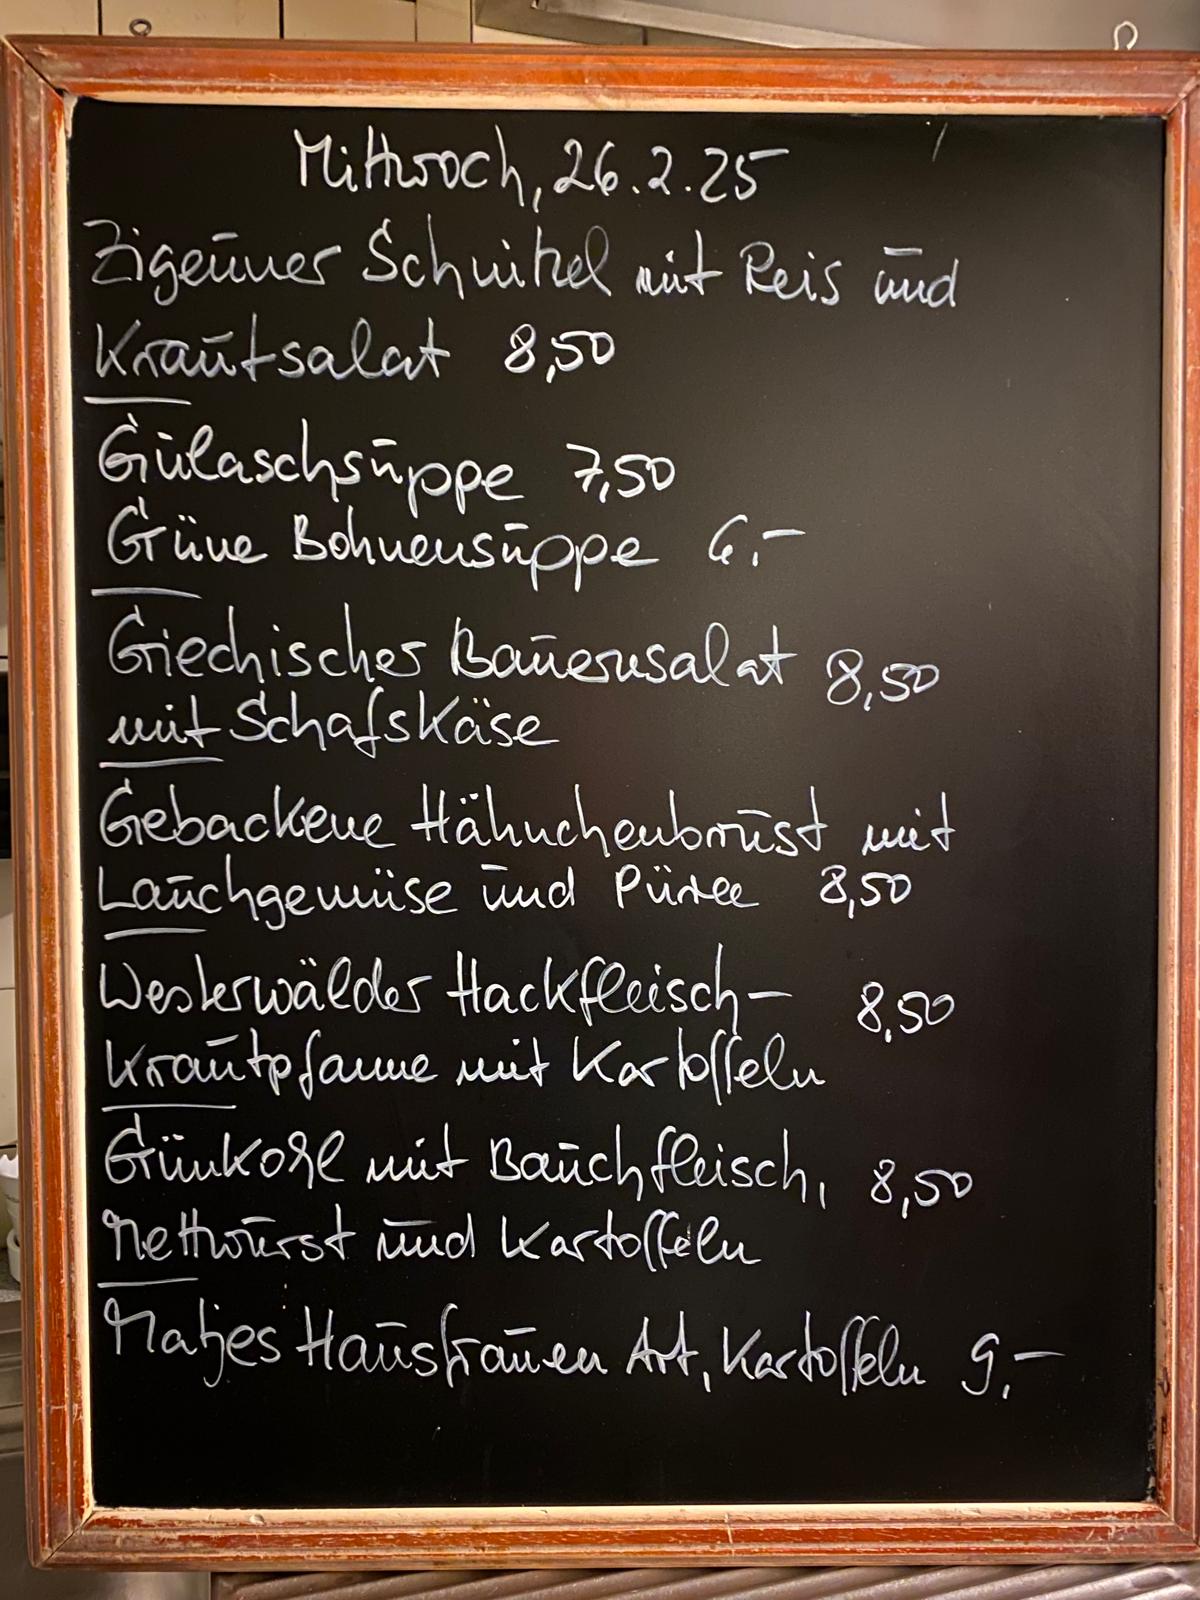 Mittwoch, 26.2.25
Zigeuner Schnitzel mit Reis und
Krautsalat 8,50
Gulaschsuppe 7,50
Grüne Bohnensuppe 6,-
Griechischer Bauernsalat 8,50
mit Schafskäse
Gebackene Hähnchenbrust mit
Lauchgemüse und Püree 8,50
Westerwälder Hackfleisch- 8,50
Krautpfanne mit Kartoffeln
Grünkohl mit Bauchfleisch, 8,50
Mettwurst und Kartoffeln
Matjes Hausfrauen Art, Kartoffeln 9,-